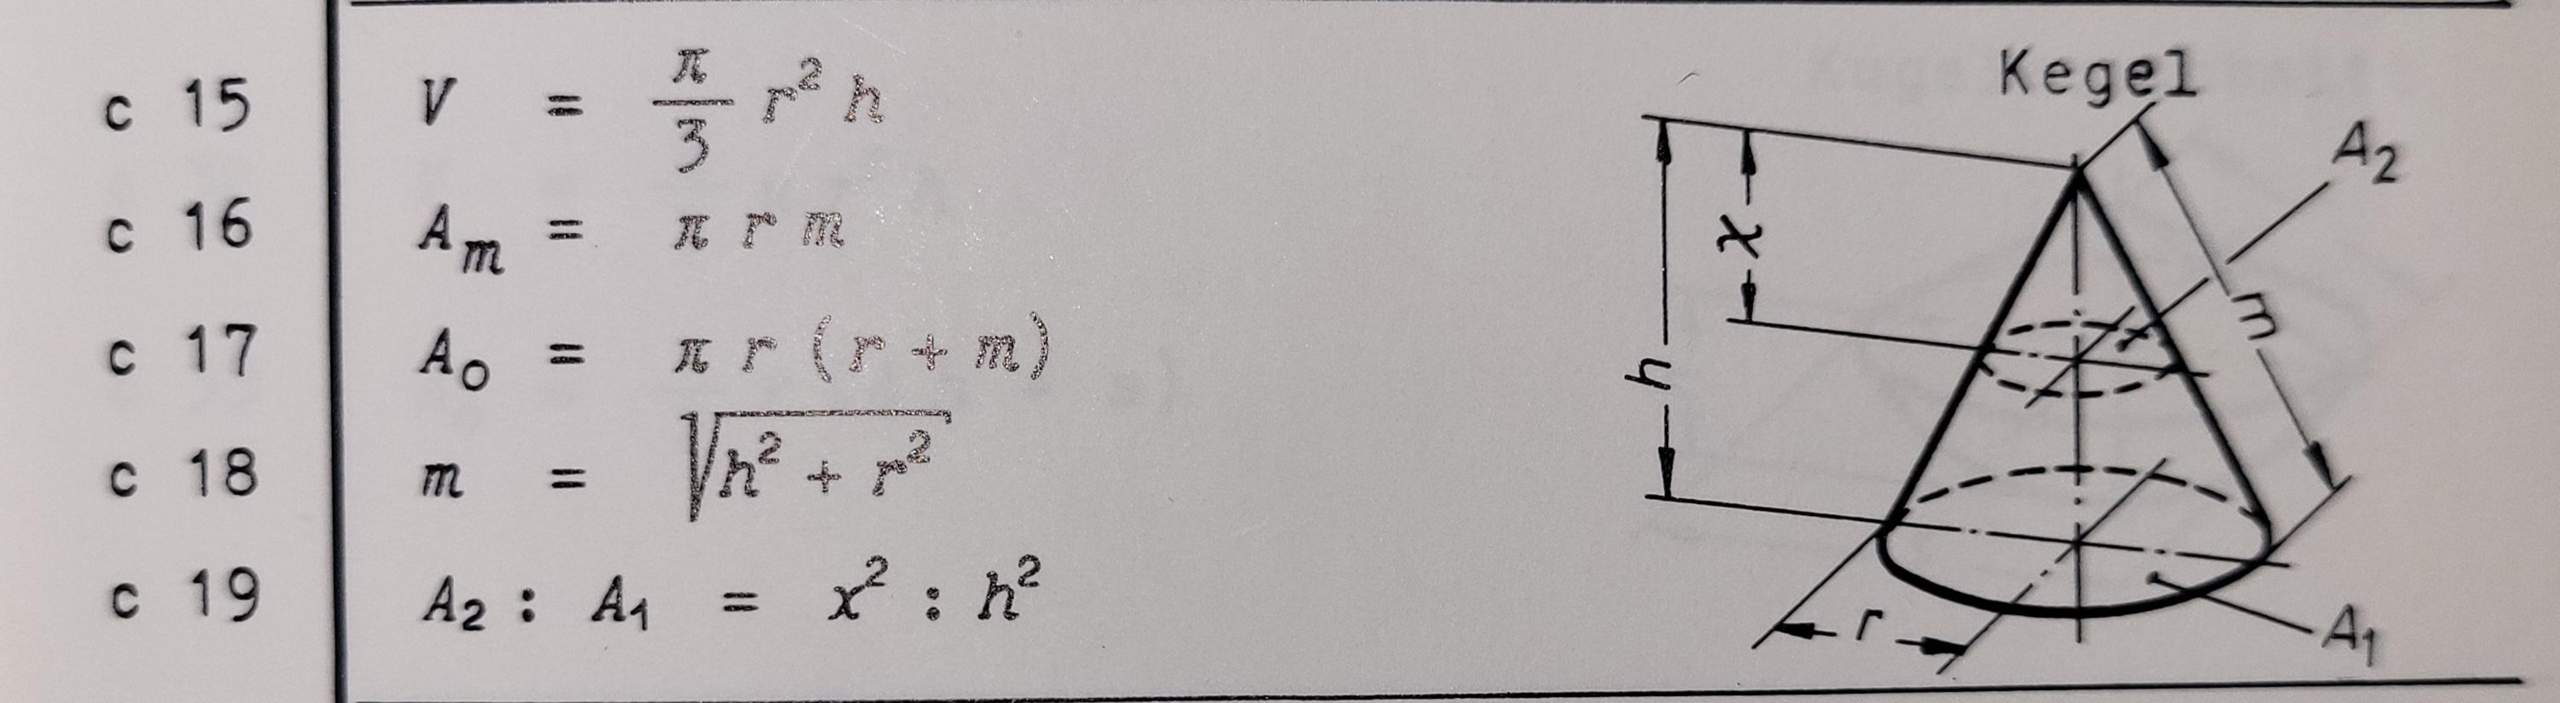 c 15 V = π/3 r² h
c 16 Aₘ = π r m
c 17 A₀ = π r (r + m)
c 18 m = √(h² + r²)
c 19 A₂ : A₁ = x² : h²
Kegel
A₂
x
m
h
r
A₁